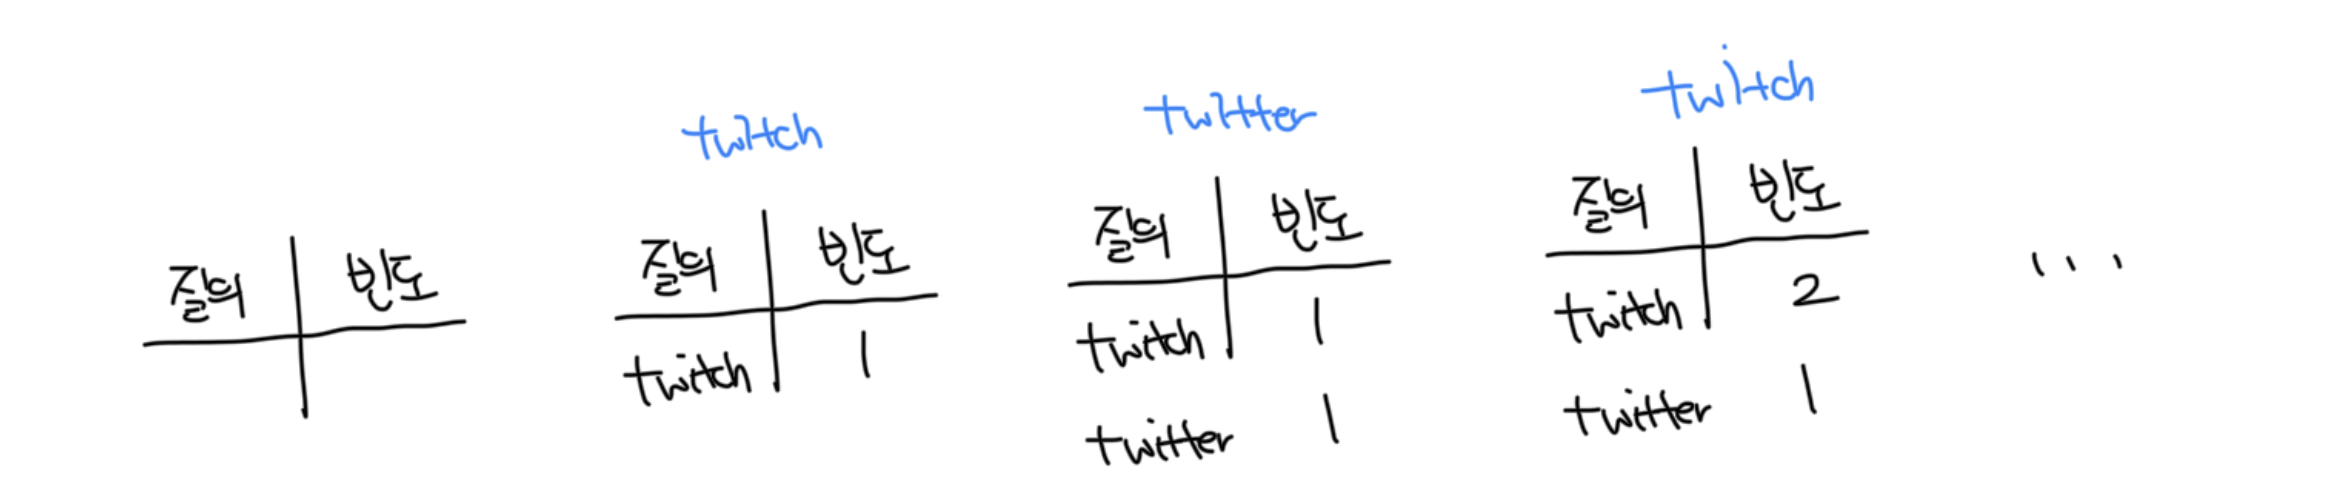 질의 빈도
twitch
질의 빈도
twitch 1
twitter
질의 빈도
twitch 1
twitter 1
twitch
질의 빈도
twitch 2
twitter 1
...